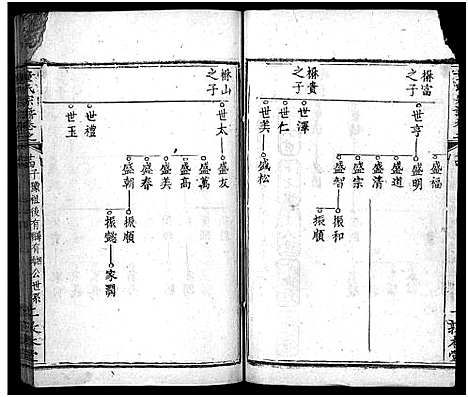 楙富
之子
世亨
盛福
盛明
盛道
盛清
盛宗
盛智
振和
振順
楙貴
之子
世澤
世仁
世美
盛松
楙山
之子
世太
盛友
盛萬
盛高
盛美
盛春
盛朝
振順
振懿
家潤
世禮
世玉
氏宗譜卷之
子陳祖後有
公世系